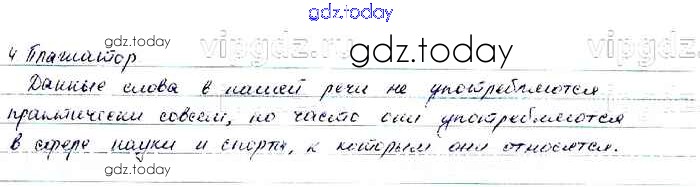 gdz.today
gdz.today
vipgdz.ru
gdz.today
4 Плагиатор
Данные слова в нашей речи не употребляются
gdz.today
практически совсем, но часто они употребляются
в сфере науки и спорта, к которым они относятся.
gdz.today